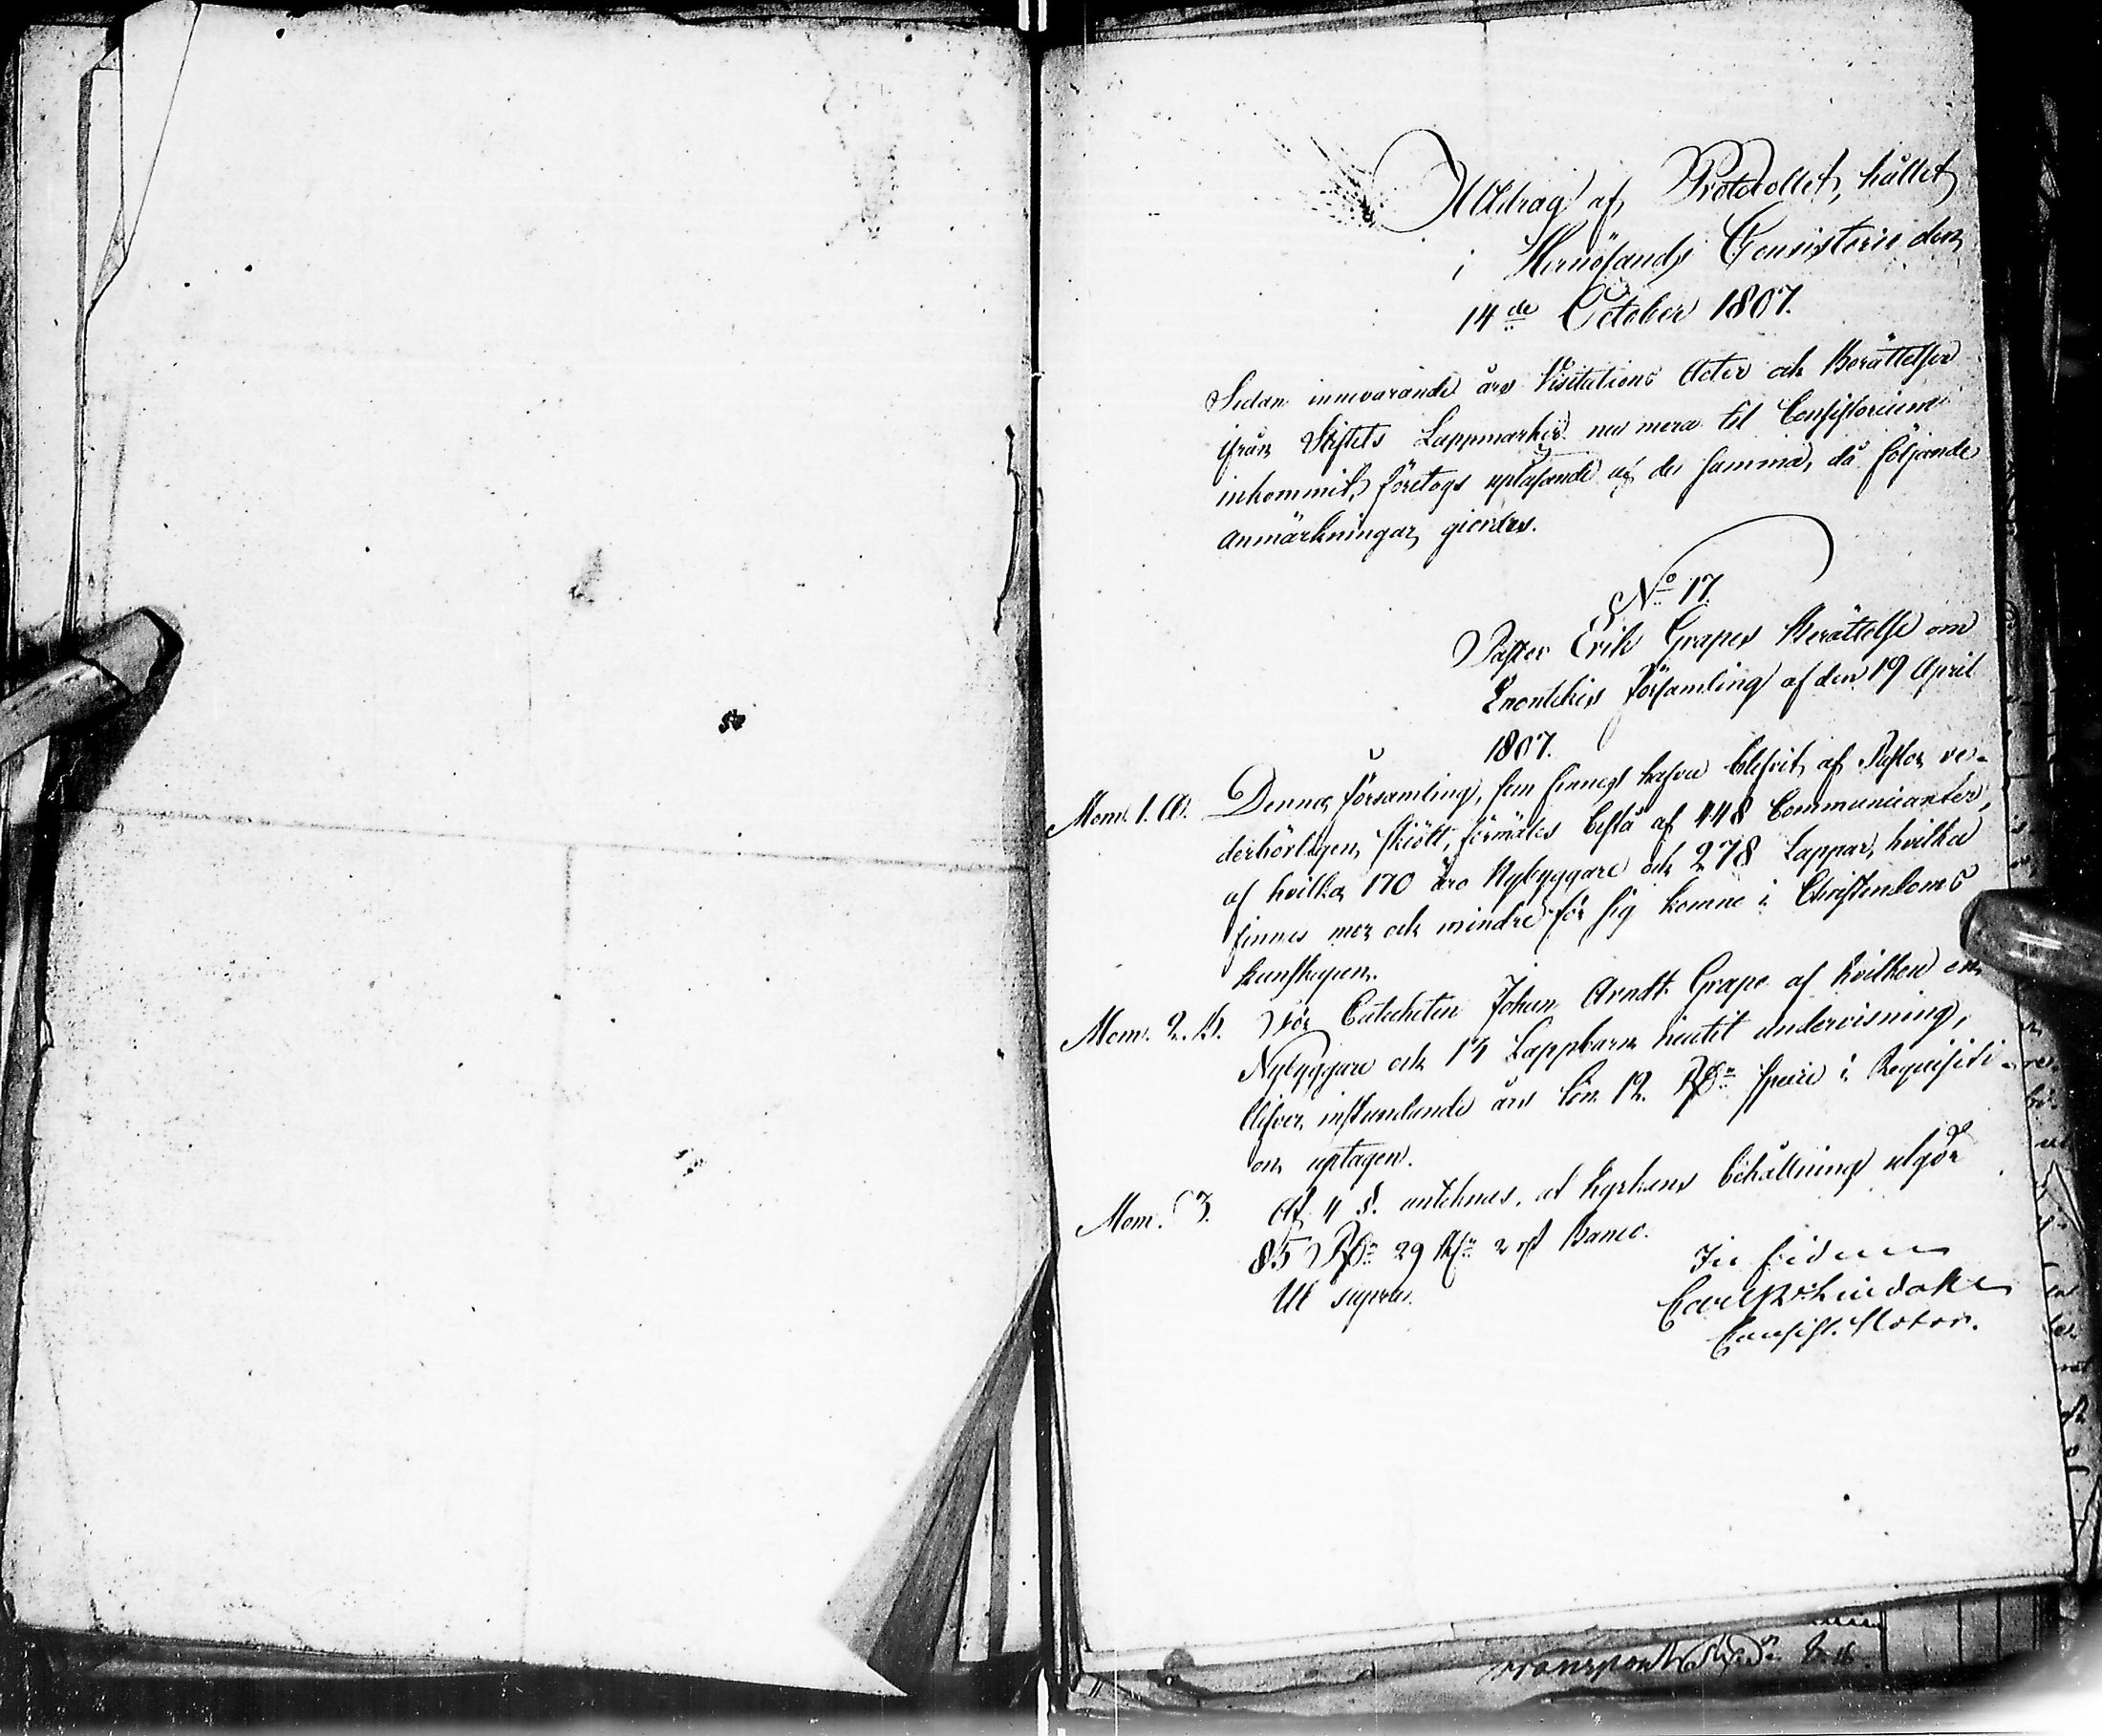 Utdrag af Protocollet, hållet
i Hernösands Consistorio den
14de October 1807.
Sedan innevarande års Visitations Acter och Berättelser
ifrån Stiftets Lappmarker nu mera til Consistorium
inkommit, företogs uplåsande af de samma, då följande
anmärkningar giordes.
No 17.
Pastor Erik Grapes Berättelse om
Enontekis Församling af den 19 April
1807.
Mom. 1. a. Denna församling, som finnes hafva blifvit af Pastor ve-
derbörligen skiött, förmäles bestå af 448 Communicanter,
af hvilka 170 äro Nybyggare och 278 Lappar, hvilka
finnes mer och mindre för sig komne i Christendoms
kunskapen.
Mom. 2. b. För Catecheten Johan Arndt Grape af hvilken en
Nybyggare och 14 Lappbarn niutit undervisning,
blifver instundande års lön 12 Rd specie i Requisiti-
on uptagen.
Mom. 3. Af 4 §. antecknas, at Kyrkans behållning utgör
85 Rd 29 sk 2 rst Banco.
Ut supra.
In fidem
Consist. Notar.
transport